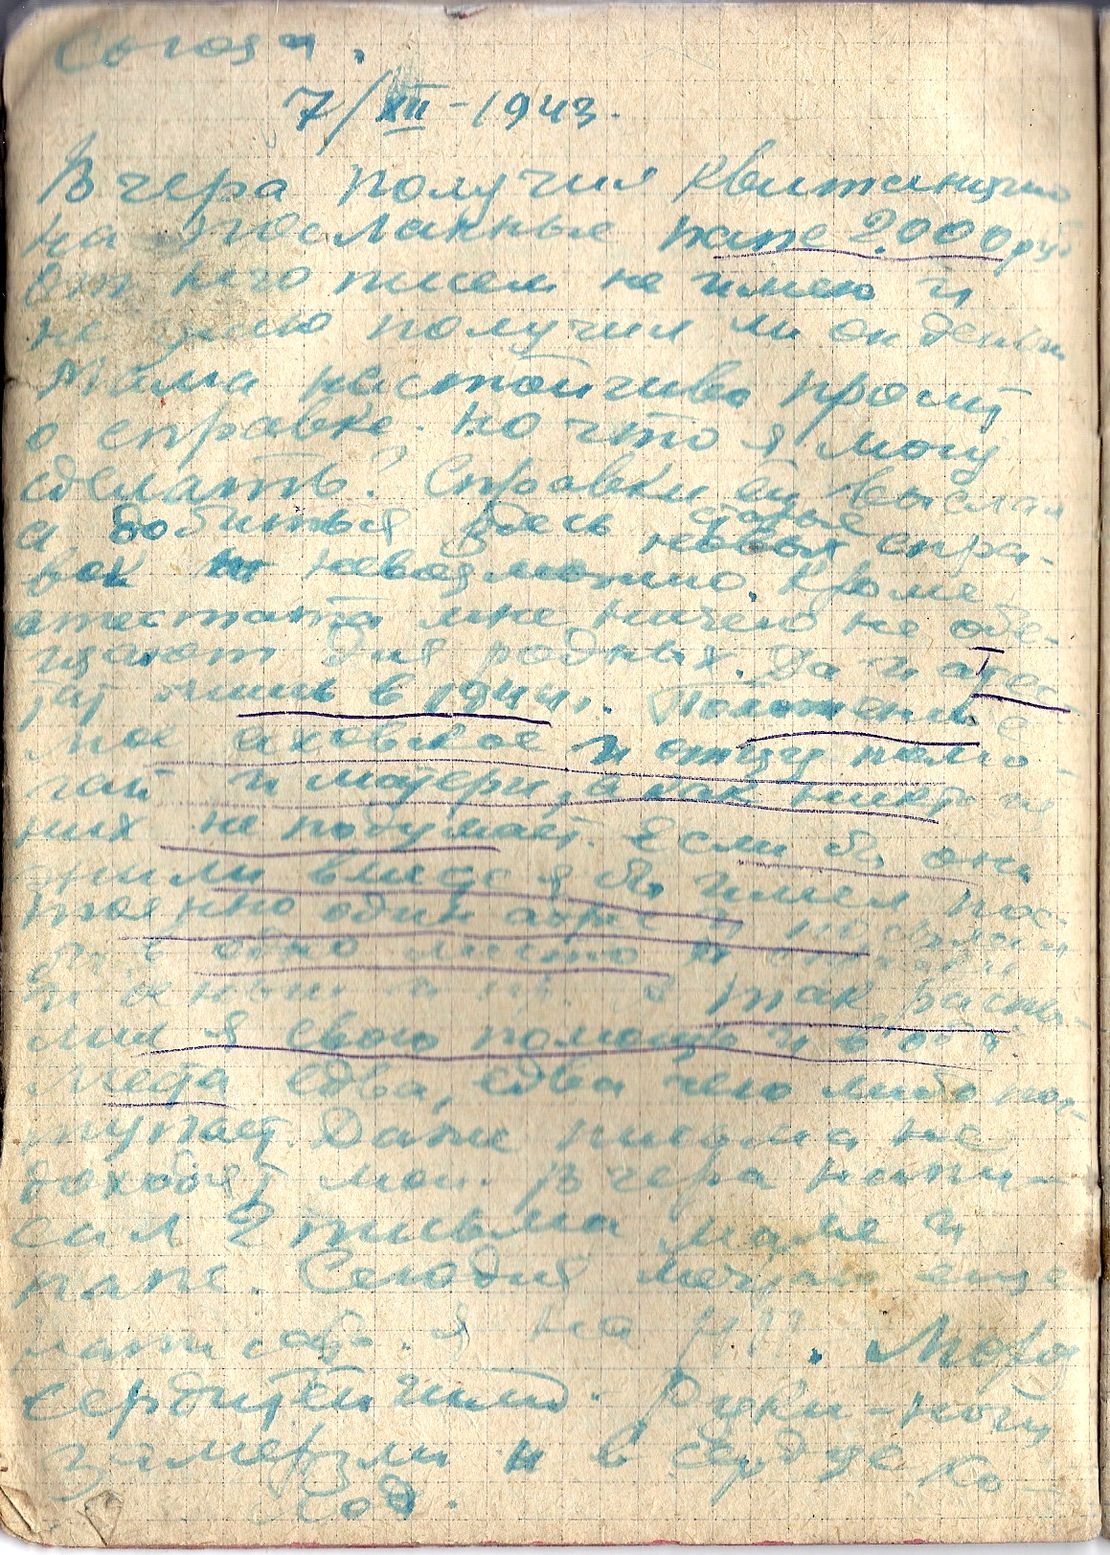 Союза.
7/XII-1943.
Вчера получил квитанцию
на посланные папе 2.000 руб
От него писем не имею и
не знаю получил ли он деньги
Мама настойчиво просит
о справке. Но что я могу
сделать? Справки ей выслал
старые
а добиться здесь новых спра-
вок невозможно. Кроме
атестата мне ничего не обе-
щают для родных. Да и атес
тат лишь в 1944г. Положение
мое аховское и отцу помо-
гай и матери, а как никто из
них не подумает. Если бы они
жили вместе я бы имел пос-
тоянно один адрес и посылал
бы в одно место и
и так распы-
лил я свою помощь и
места едва, едва чего либо пос-
тупает. Даже письма не
доходят мои. Вчера напи-
сал 2 письма маме и
папе. Сегодня мечтаю еще
написать. я на НП. Мороз
сердитейший. Руки-ноги
замерзли и в сердце хо-
лод.